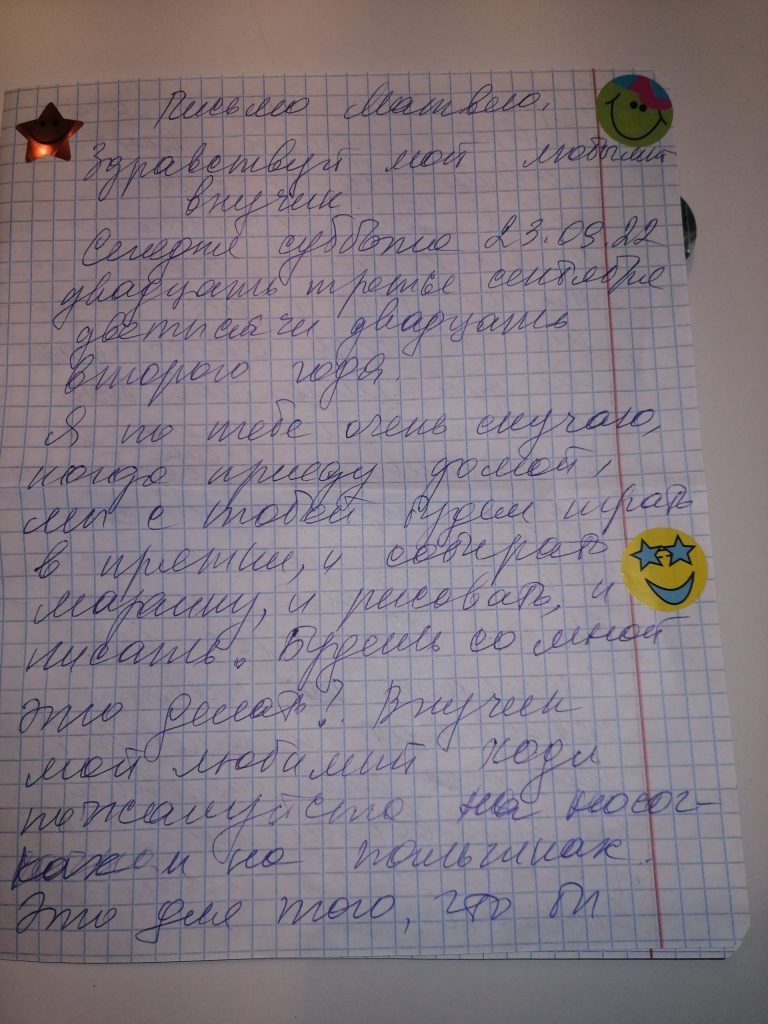 Письмо Матвею.
Здравствуй мой любимый
внучик
Сегодня суббота 23.09.22
двадцать третье сентября
дветысячи двадцать
второго года.
Я по тебе очень скучаю,
когда приеду домой,
мы с тобой будем играть
в прятки, и собирать
и рисовать, и
писать. Будешь со мной
это делать? Внучек
мой любимый ходи
пожалуйста на носоч-
на пальчиках.
Это для того, что бы